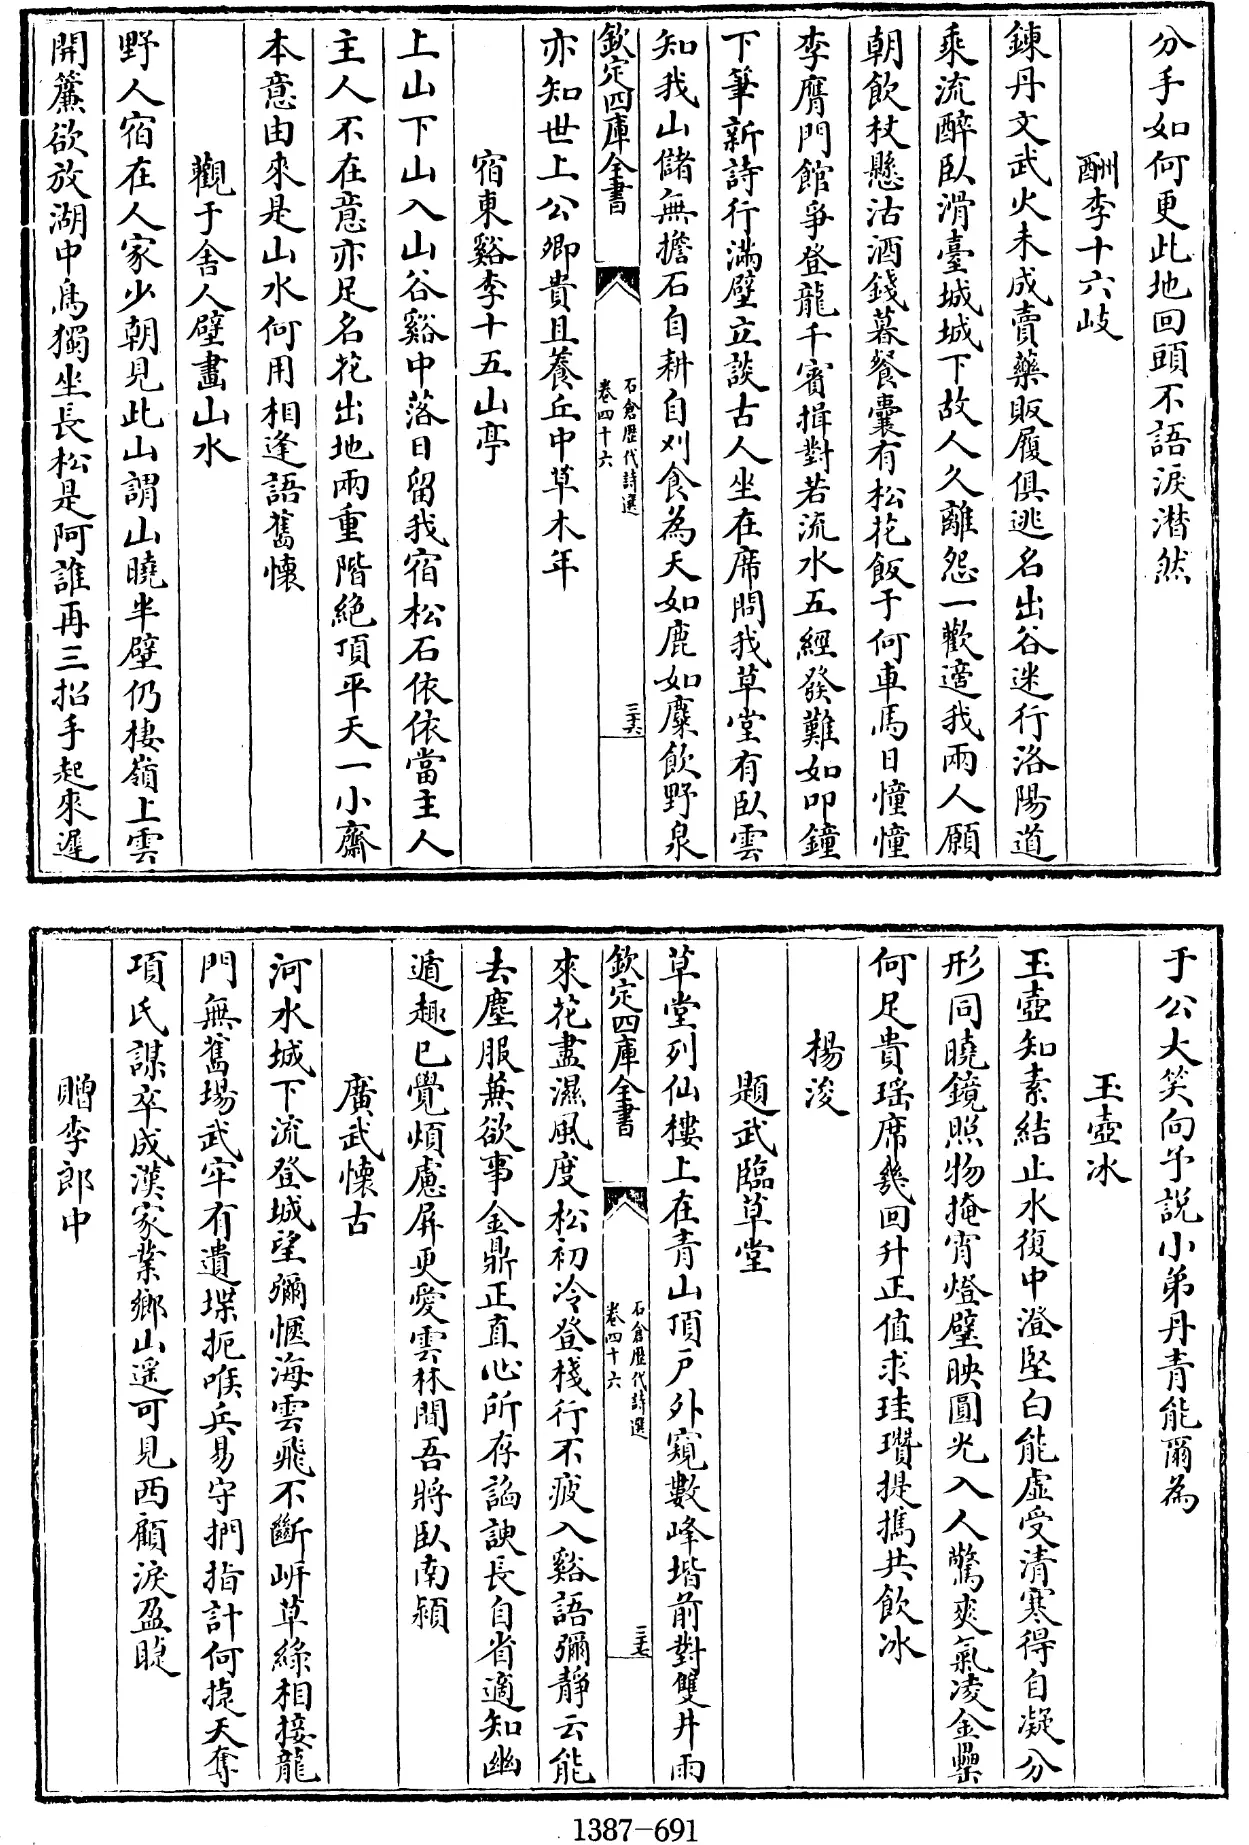 分手如何更此地回頭不語淚潸然
酬李十六岐
鍊丹文武火未成賣藥販履俱逃名出谷迷行洛陽道
乘流醉臥滑臺城城下故人久離怨一歡適我兩人願
朝飲杖懸沽酒錢暮餐囊有松花飯于何車馬日憧憧
李膺門館爭登龍千賓揖對若流水五經發難如叩鐘
下筆新詩行滿壁立談古人坐在席問我草堂有臥雲
知我山儲無擔石自耕自刈食為天如鹿如麋飲野泉
欽定四庫全書
石倉歷代詩選
卷四十六
三六
亦知世上公卿貴且養丘中草木年
宿東谿李十五山亭
上山下山入山谷谿中落日留我宿松石依依當主人
主人不在意亦足名花出地兩重階絶頂平天一小齋
本意由來是山水何用相逢語舊懷
觀于舍人壁畫山水
野人宿在人家少朝見此山謂山曉半壁仍棲嶺上雲
開簾欲放湖中鳥獨坐長松是阿誰再三招手起來遲
于公大笑向予說小弟丹青能爾為
玉壺冰
玉壺知素結止水復中澄堅白能虛受清寒得自凝分
形同曉鏡照物掩宵燈壁映圓光入人驚爽氣凌金罍
何足貴瑶席幾回升正值求珪瓚提攜共飲冰
楊浚
題武臨草堂
草堂列仙樓上在青山頂戶外窺數峰堦前對雙井雨
來花盡濕風度松初冷登棧行不疲入谿語彌靜云能
欽定四庫全書
石倉歷代詩選
卷四十六
三七
去塵服兼欲事金鼎正直心所存諂諛長自省適知幽
遁趣已覺煩慮屏更愛雲林間吾將臥南潁
廣武懷古
河水城下流登城望彌愜海雲飛不斷岍草綠相接龍
門無舊場武牢有遺堞扼喉兵易守捫指計何捷天奪
項氏謀卒成漢家業鄉山遥可見西顧淚盈睫
贈李郎中
1387-691